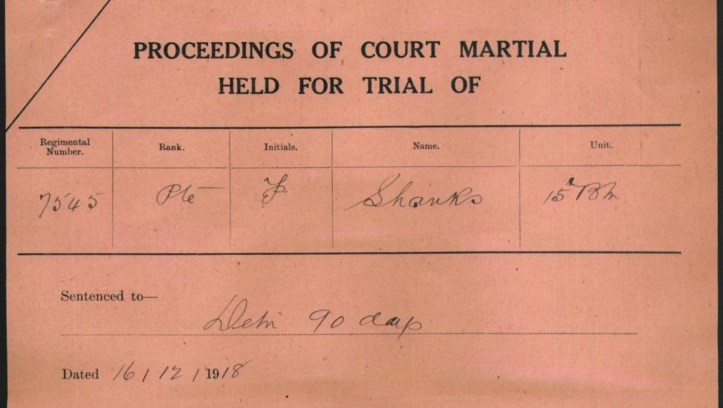 PROCEEDINGS OF COURT MARTIAL
HELD FOR TRIAL OF
Regimental Number. Rank. Initials. Name. Unit.
7545 Pte F Shanks 15 Bn
Sentenced to—
Detn 90 days
Dated 16/12/1918